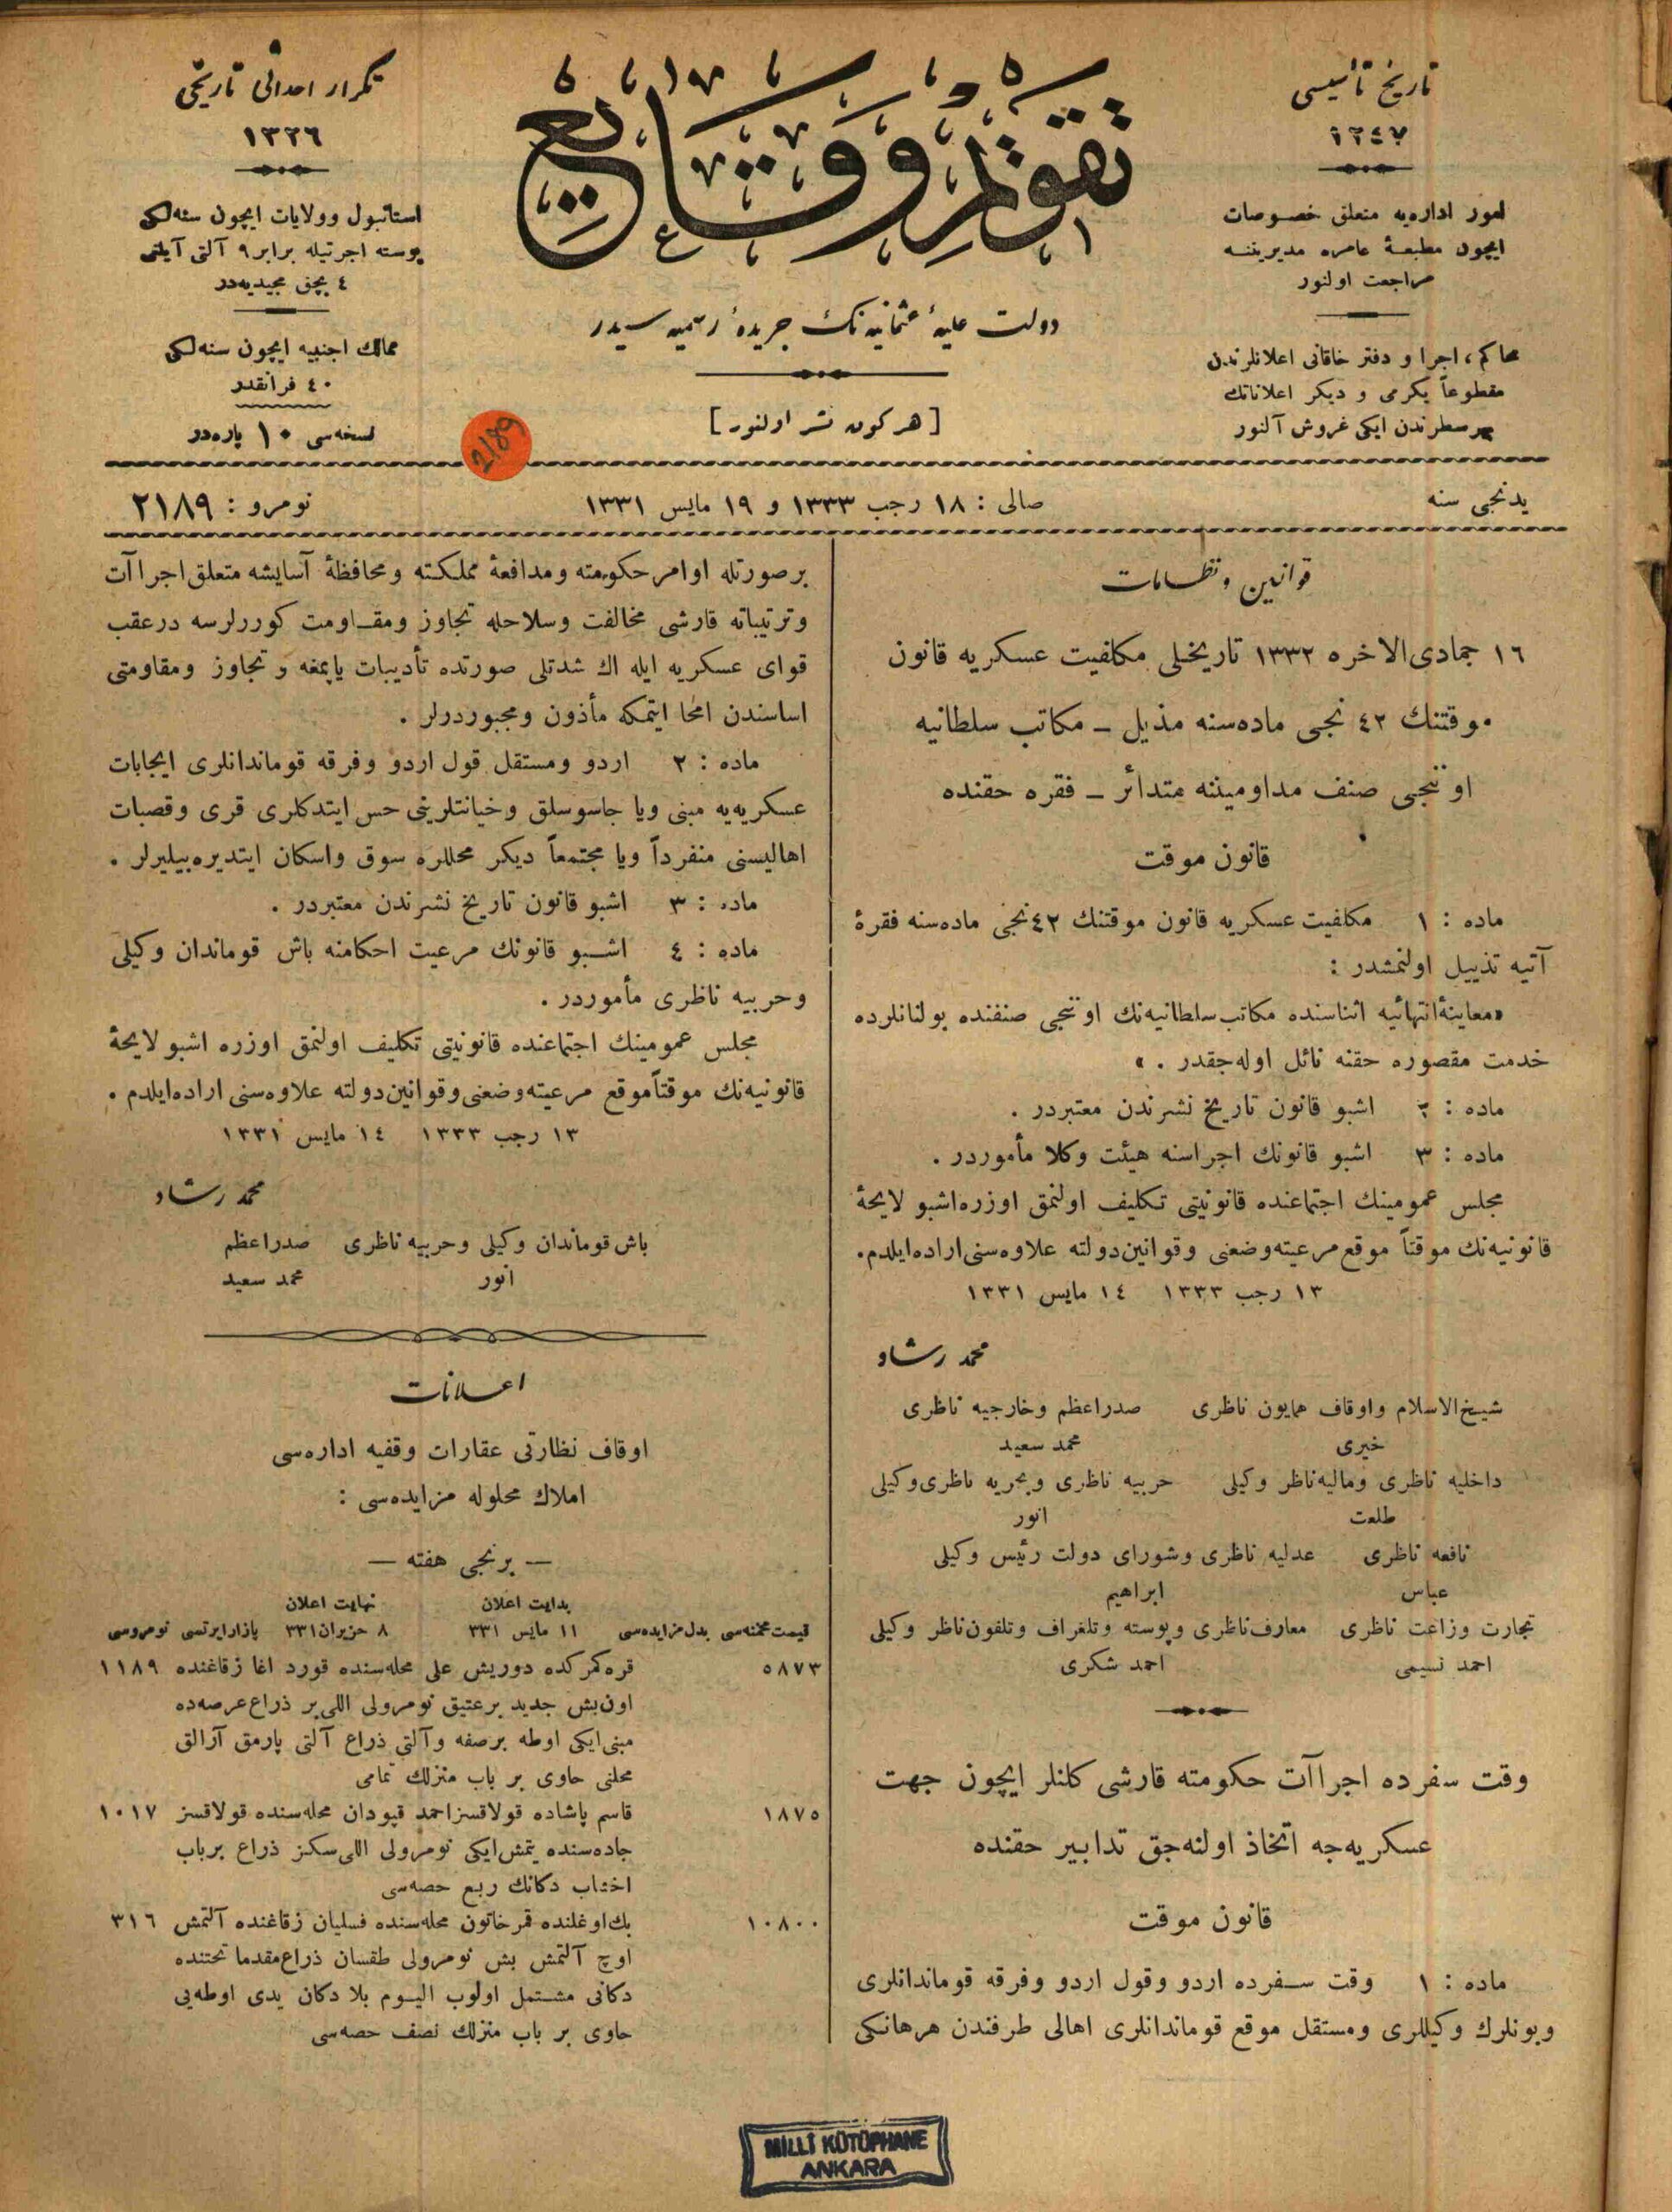 تاريخ تأسيسى
١٢٤٧
امور اداره‌يه متعلق خصوصات
ايچون مطبعۀ عامره مديريتنه
مراجعت اولنور
محاكم، اجرا و دفتر خاقانى اعلانلرندن
مقطوعاً يكرمى و ديكر اعلاناتك
هرسطرندن ايكى غروش آلنور
تقويم وقايع
دولت عليۀ عثمانيه‌نك جريدۀ رسميه‌سيدر
[هركون نشر اولنور]
تكرار احداثى تاريخى
١٣٢٦
استانبول وولايات ايچون سنه‌لكى
پوسته اجرتيله برابر ٩ آلتى آيلغى
٤ بچق مجيديه‌در
ممالك اجنبيه ايچون سنه‌لكى
٤٠ فرانقدر
نسخه‌سى ١٠ پاره‌در
2189
يدنجى سنه
صالى : ١٨ رجب ١٣٣٣ و ١٩ مايس ١٣٣١
نومرو : ٢١٨٩
قوانين ونظامات
١٦ جمادى‌الاخره ١٣٣٢ تاريخلى مكلفيت عسكريه قانون
موقتنك ٤٢ نجى ماده‌سنه مذيل ـ مكاتب سلطانيه
اوننجى صنف مداومينه متدائر ـ فقره حقنده
قانون موقت
ماده : ١ مكلفيت عسكريه قانون موقتنك ٤٢نجى ماده‌سنه فقرۀ
آتيه تذييل اولنمشدر :
«معاينۀ‌انتهائيه اثناسنده مكاتب‌سلطانيه‌نك اوننجى صنفنده بولنانلرده
خدمت مقصوره حقنه نائل اوله‌جقدر . »
ماده : ٢ اشبو قانون تاريخ نشرندن معتبردر .
ماده : ٣ اشبو قانونك اجراسنه هيئت وكلا مأموردر .
مجلس عمومينك اجتماعنده قانونيتى تكليف اولنمق اوزره‌اشبو لايحۀ
قانونيه‌نك موقتاً موقع مرعيته‌وضعنى وقوانين‌دولته علاوه‌سنى‌اراده‌ايلدم.
١٣ رجب ١٣٣٣ ١٤ مايس ١٣٣١
محمد رشاد
شيخ‌الاسلام واوقاف همايون ناظرى صدراعظم وخارجيه ناظرى
خيرى محمد سعيد
داخليه ناظرى وماليه‌ناظر وكيلى حربيه ناظرى وبحريه ناظرى‌وكيلى
طلعت انور
نافعه ناظرى عدليه ناظرى وشوراى دولت رئيس وكيلى
عباس ابراهيم
تجارت وزراعت ناظرى معارف‌ناظرى وپوسته وتلغراف وتلفون‌ناظر وكيلى
احمد نسيمى احمد شكرى
وقت سفرده اجراآت حكومته قارشى كلنلر ايچون جهت
عسكريه‌جه اتخاذ اولنه‌جق تدابير حقنده
قانون موقت
ماده : ١ وقت سفرده اردو وقول اردو وفرقه قوماندانلرى
وبونلرك وكيللرى ومستقل موقع قوماندانلرى اهالى طرفندن هرهانكى
برصورتله اوامر حكومته ومدافعۀ مملكته ومحافظۀ آسايشه متعلق اجراآت
وترتيباته قارشى مخالفت وسلاحله تجاوز ومقاومت كوررلرسه درعقب
قواى عسكريه ايله اك شدتلى صورتده تأديبات ياپمغه و تجاوز ومقاومتى
اساسندن امحا ايتمكه مأذون ومجبوردرلر .
ماده : ٢ اردو ومستقل قول اردو وفرقه قوماندانلرى ايجابات
عسكريه‌يه مبنى ويا جاسوسلق وخيانتلرينى حس ايتدكلرى قرى وقصبات
اهاليسنى منفرداً ويا مجتمعاً ديكر محللره سوق واسكان ايتديره‌بيليرلر .
ماده : ٣ اشبو قانون تاريخ نشرندن معتبردر .
ماده : ٤ اشبو قانونك مرعيت احكامنه باش قوماندان وكيلى
وحربيه ناظرى مأموردر .
مجلس عمومينك اجتماعنده قانونيتى تكليف اولنمق اوزره اشبو لايحۀ
قانونيه‌نك موقتاً‌موقع مرعيته‌وضعنى‌وقوانين‌دولته علاوه‌سنى اراده‌ايلدم .
١٣ رجب ١٣٣٣ ١٤ مايس ١٣٣١
محمد رشاد
باش قوماندان وكيلى وحربيه ناظرى صدراعظم
انور محمد سعيد
اعلانات
اوقاف نظارتى عقارات وقفيه اداره‌سى
املاك محلوله مزايده‌سى :
— برنجى هفته —
بدايت اعلان نهايت اعلان
قيمت‌مخمنه‌سى بدل‌مزايده‌سى ١١ مايس ٣٣١ ٨ حزيران٣٣١ پازارايرتسى نومروسى
٥٨٧٣ قره‌كمركده دوريش على محله‌سنده قورد اغا زقاغنده ١١٨٩
اون‌بش جديد برعتيق نومرولى اللى‌بر ذراع‌عرصه‌ده
مبنى‌ايكى اوطه برصفه وآلتى ذراع آلتى پارمق آرالق
محلنى حاوى بر باب منزلك تمامى
١٨٧٥ قاسم پاشاده قولاقسزاحمد قپودان محله‌سنده قولاقسز ١٠١٧
جاده‌سنده يتمش‌ايكى نومرولى اللى‌سكز ذراع برباب
اخشاب دكانك ربع حصه‌سى
١٠٨٠٠ بك‌اوغلنده قمرخاتون محله‌سنده فسليان زقاغنده آلتمش ٣١٦
اوچ آلتمش بش نومرولى طقسان ذراع‌مقدما تحتنده
دكانى مشتمل اولوب اليوم بلا دكان يدى اوطه‌يى
حاوى بر باب منزلك نصف حصه‌سى
MİLLİ KÜTÜPHANE
ANKARA